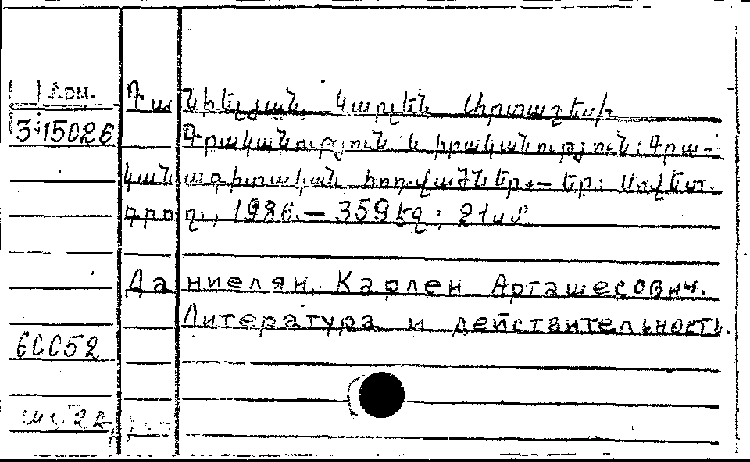 Դանիելյան, Կարլեն Արտաշեսի
3-15026 Գրականություն և իրականություն: Գրա-
կանագիտական հոդվածներ.— Եր.: Սովետ.
գրող, 1986.— 359 էջ; 21 սմ
Даниелян, Карлен Арташесович.
Литература и действительность.
60052